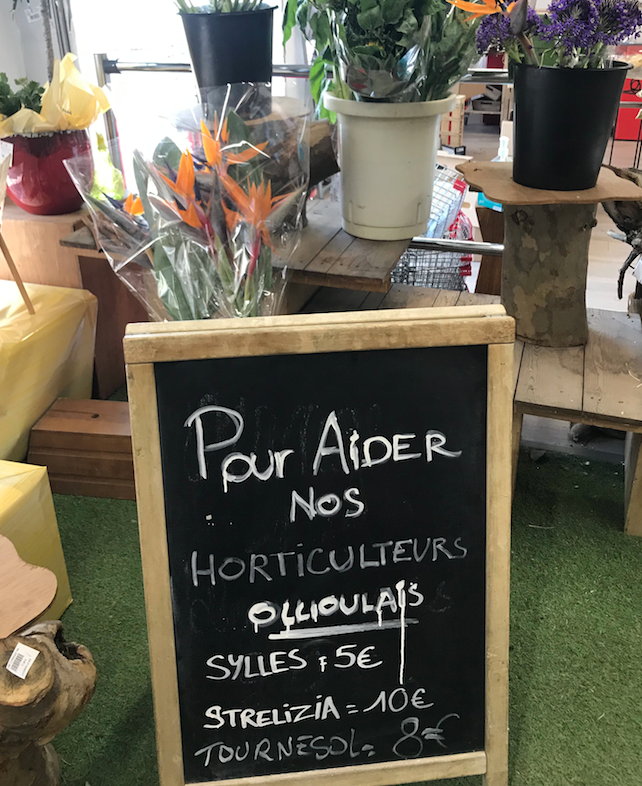 Pour AiDER
NOS
HORTiCULTEURS
OLLIOULAIS
SYLLES : 5€
STRELiZiA = 10€
TOURNESOL = 8€